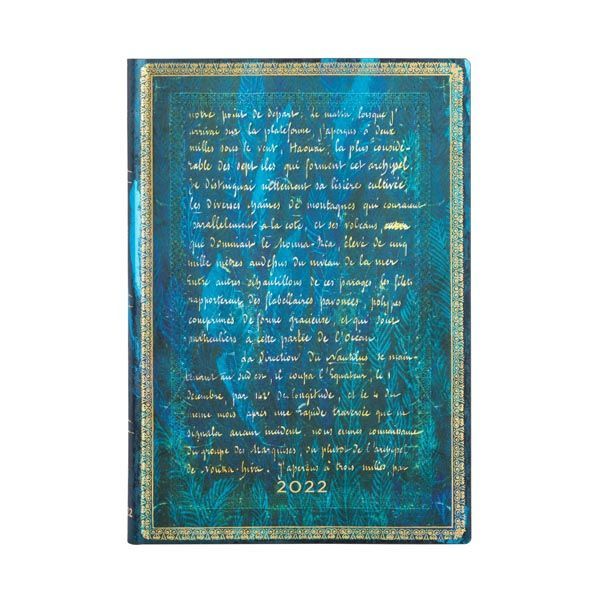 notre point de départ. Le matin lorsque j'
arrivai sur la plateforme, j'aperçus à deux
milles sous le vent, Haouaï, la plus considé-
rable des sept îles qui forment cet archipel.
Je distinguai nettement sa lisière cultivée
les diverses chaînes de montagnes qui couraient
parallèlement à la côte, et ses volcans
que dominait le Mouna-Rea, élevé de cinq
mille mètres audessus du niveau de la mer.
Entre autres échantillons de ces parages, les filets
rapportèrent des flabellaires pavonées, polypes
comprimés de forme gracieuse, et qui sont
particuliers à cette partie de l'Océan.
La direction du Nautilus se main-
tenant au sud est, il coupa l'Equateur, le 1
décembre, par 142° de longitude, et le 4 du
même mois, après une rapide traversée que ne
signala aucun incident, nous eûmes connaissance
du groupe des Marquises, ou plutôt de l'archipel
de Nouka-hiva. J'aperçus à trois milles, par
2022
2